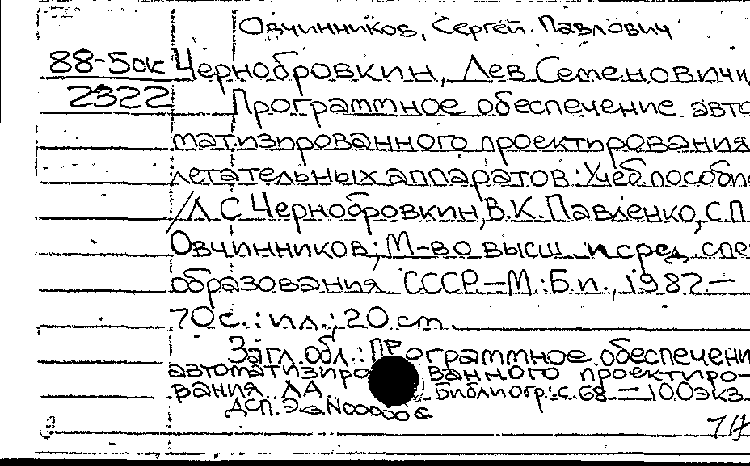 Овчинников, Сергей Павлович
88-5ок Чернобровкин, Лев Семенович
2322 Программное обеспечение авто
матизированного проектирования
летательных аппаратов: Учеб пособие
/Л.С. Чернобровкин, В.К. Павленко, С.П.
Овчинников; М-во высш и сред спе
образования СССР.—М.: Б.и., 1987.—
70 с.: ил.; 20 см.
Загл. обл.: Программное обеспечени
автоматизированного проектиро-
вания ЛА Библиогр: с. 68 — 100экз
ДСП. Экз N000006